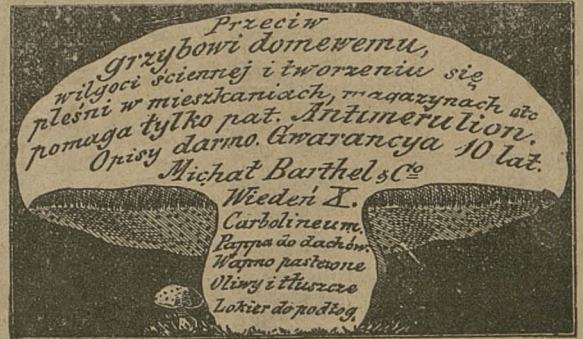 Przeciw
grzybowi domowemu,
wilgoci ściennej i tworzeniu się
pleśni w mieszkaniach, magazynach etc
pomaga tylko pat. Antimerulion.
Opisy darmo. Gwarancya 10 lat.
Michał Barthel & Cto
Wiedeń X.
Carbolineum.
Pappa do dachów.
Wapno pastewne
Oliwy i tłuszcze
Lokier do podłog.